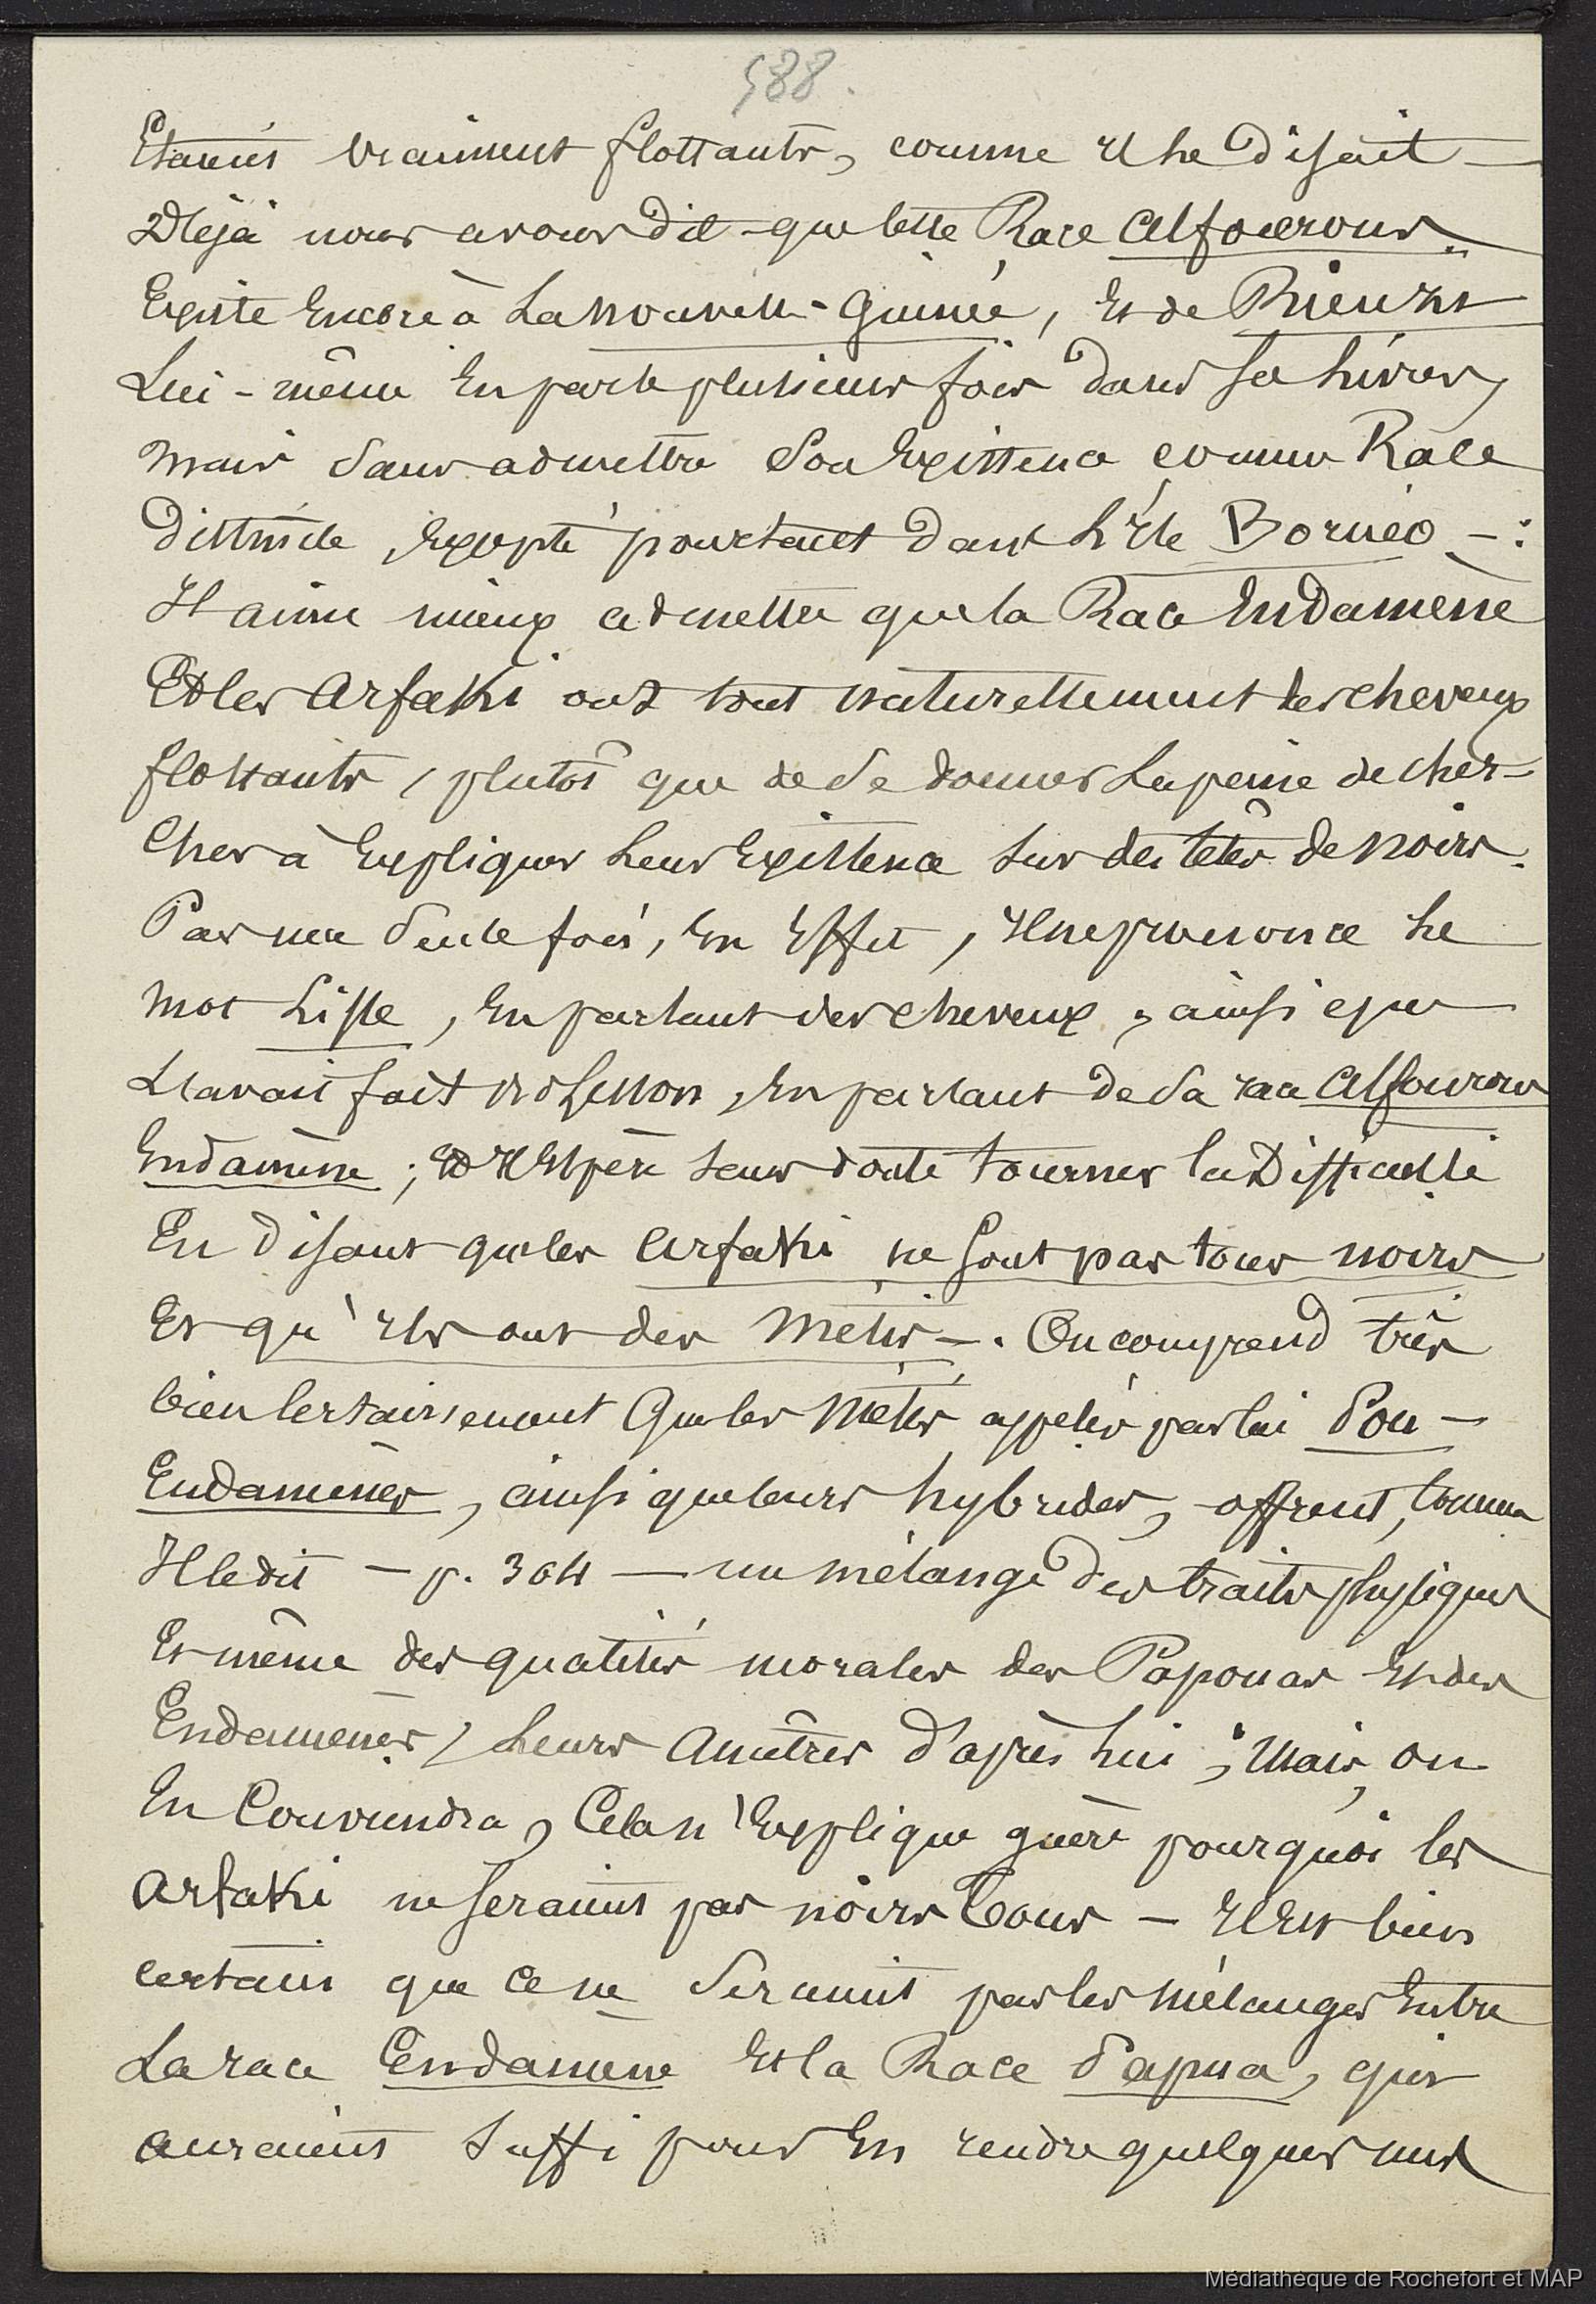 588.
Etaient vraiment flottants, comme il le disait —
Déjà nous avons dit que cette Race Alfourous
Existe Encore à La Nouvelle-Guinée, Et de Rienzi
Lui-même En parle plusieurs fois dans ses livres,
mais sans admettre son Existence comme Race
Distincte, Excepté pourtant dans L'Ile Bornéo — :
Il aime mieux admettre que la Race Endamène
Et les Arfakis ont tout naturellement les cheveux
flottants, plutôt que de se donner la peine de cher-
cher à Expliquer leur Existence sur des têtes de noirs.
Pas une seule fois, En Effet, Il ne prononce le
mot Lisse, En parlant des cheveux, ainsi que
L'avait fait Lesson, En parlant de sa race Alfourous
Endamène ; Et Il Espère sans doute tourner la Difficulté
En disant que les Arfaki ne sont pas tous noirs
Et qu'Ils ont des Métis —. On comprend très
bien certainement que les Métis appelés par lui Pou-
Endamènes, ainsi que leurs hybrides, offrent, comme
Il le dit — p. 304 — un mélange des traits physiques
Et même des qualités morales des Papouas Et des
Endamènes, leurs Ancêtres d'après lui ; Mais, on
En Conviendra, Cela n'Explique guère pourquoi les
Arfaki ne seraient pas noirs Tous — Il Est bien
certain que ce ne seraient pas les mélanges Entre
La race Endamène Et la Race Papua, qui
auraient suffi pour En rendre quelques uns
Médiathèque de Rochefort et MAP